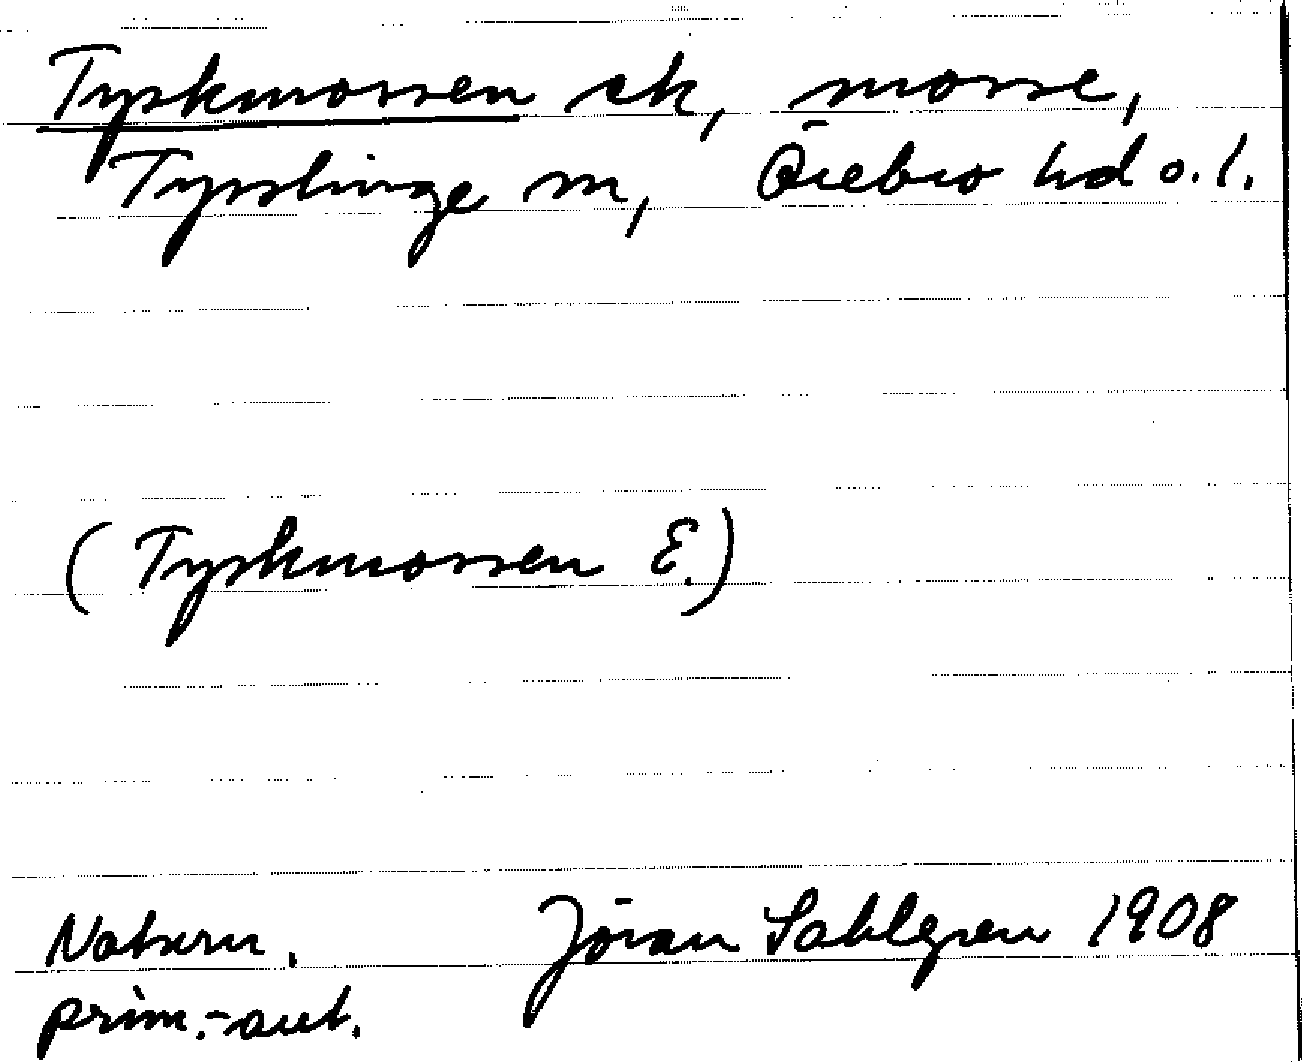 Tyskmossen ek, mosse,
Tysslinge sn, Örebro hd o. l.
(Tyskmossen E.)
Naturn. Jöran Sahlgren 1908
prim.-aut.